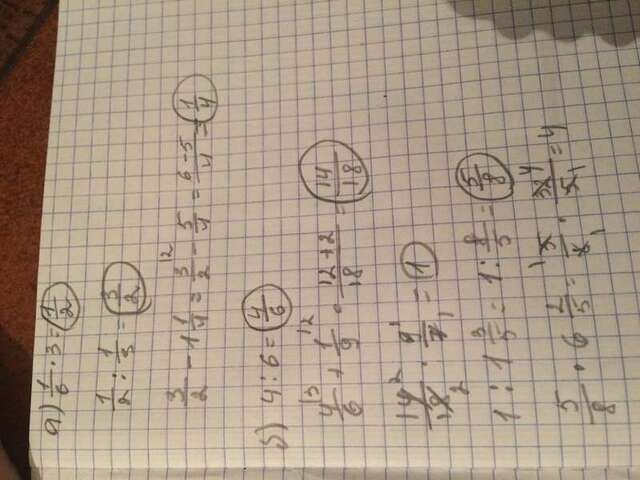 а) 1/6 · 3 = 1/2
1/2 : 1/3 = 3/2
3/2 - 1 1/4 = 3/2 |2 - 5/4 = 6-5/4 = 1/4
б) 4 : 6 = 4/6
4/6 |3 + 1/9 |2 = 12+2/18 = 14/18
14/18 2 2 · 9/7 1 1 = 1
1 : 1 3/5 = 1 : 8/5 = 5/8
5/8 · 6 2/5 = 5/8 1 1 · 32/5 4 1 = 4